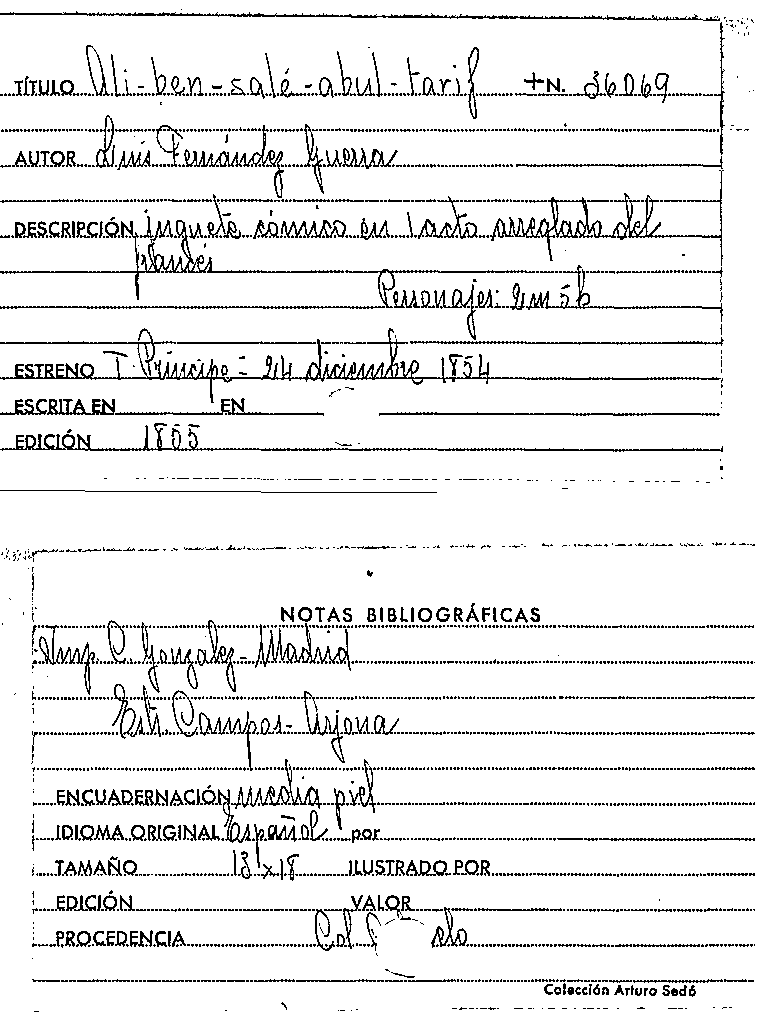 TÍTULO Ali-ben-salé-abul-tarif +N. 36069
AUTOR Luis Fernández Guerra
DESCRIPCIÓN juguete cómico en 1 acto arreglado del
flandés
Personajes: 2m 5h
ESTRENO T. Príncipe - 24 diciembre 1854
ESCRITA EN EN
EDICIÓN 1855
NOTAS BIBLIOGRÁFICAS
Imp C. Gonzalez - Madrid
Estr. Campos - Arjona
ENCUADERNACIÓN media piel
IDIOMA ORIGINAL Español por
TAMAÑO 13'x18 ILUSTRADO POR
EDICIÓN VALOR
PROCEDENCIA Col
Colección Arturo Sedó